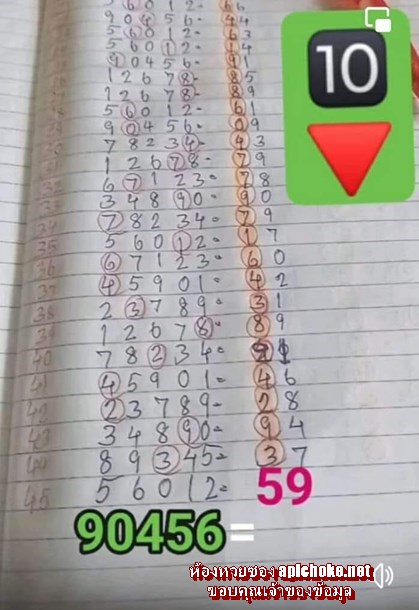 56012= 66
90456= 44
56012- 63
56012- 14
90456- 91
12678- 85
12678- 89
56012- 61
90456- 09
78234- 43
12678- 79
67123= 78
34890= 90
78234- 79
35 56012= 17
36 67123= 60
37 45901= 42
38 23789= 31
39 12678= 89
40 78234=
41 45901= 46
42 23789= 28
43 34890= 94
44 89345= 37
45 56012= 59
90456=
10
ห้องหวยซอง apichoke.net
ขอบคุณเจ้าของข้อมูล